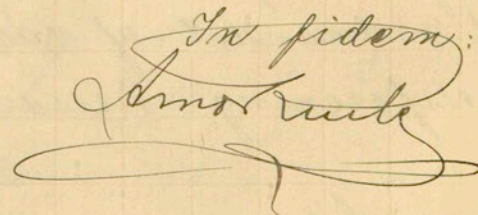 In fidem:
Arno Kunte